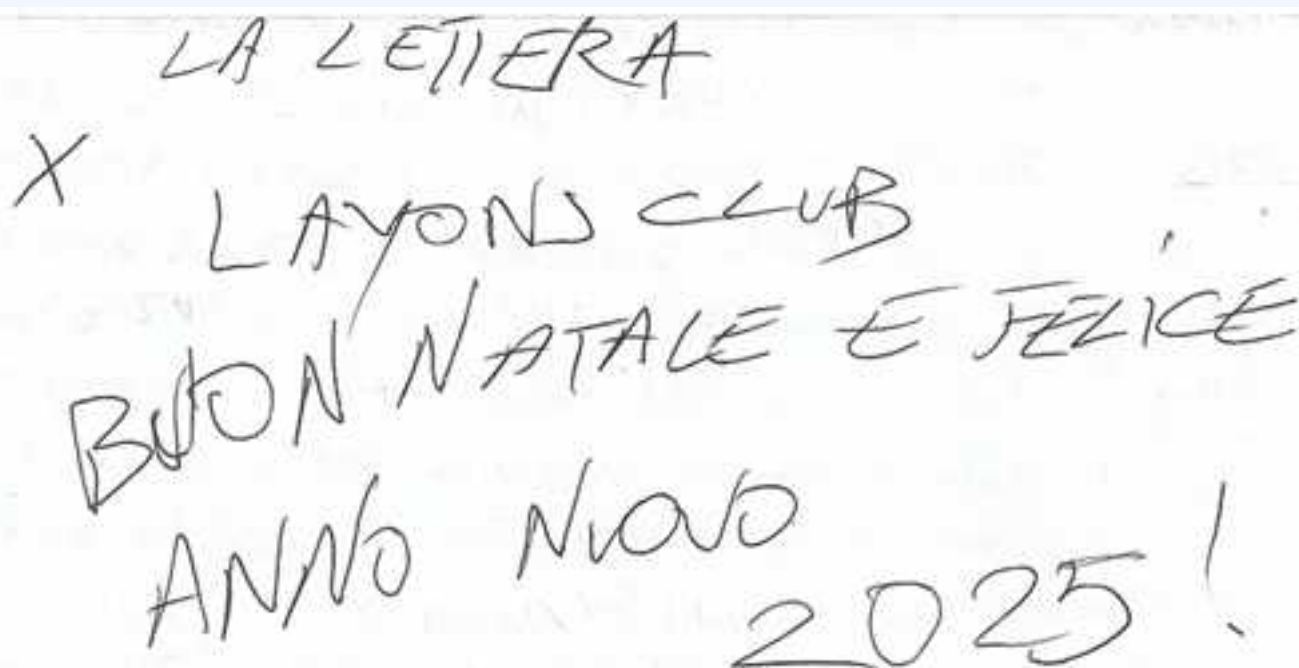 LA LETTERA
X
LAYONS CLUB
BUON NATALE E FELICE
ANNO NUOVO
2025!